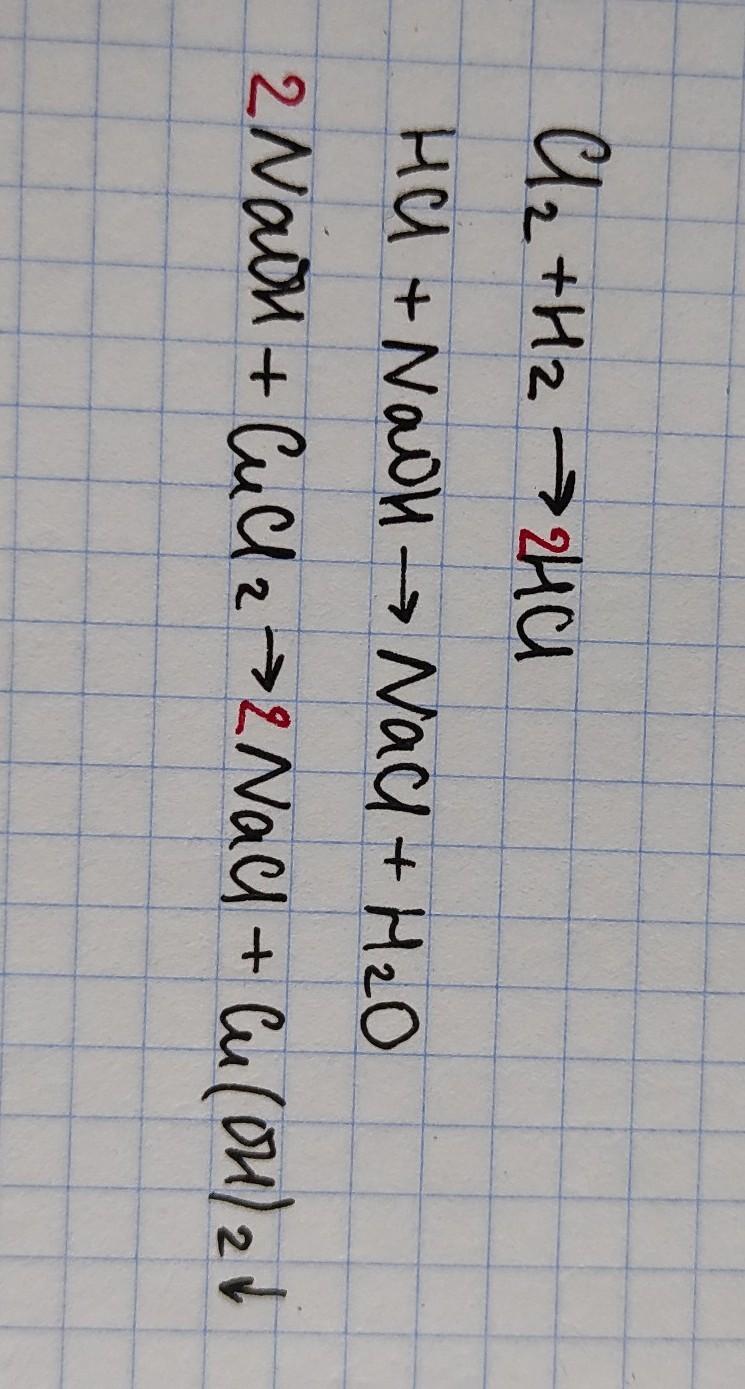 Cl₂ + H₂ → 2HCl
HCl + NaOH → NaCl + H₂O
2NaOH + CuCl₂ → 2NaCl + Cu(OH)₂↓